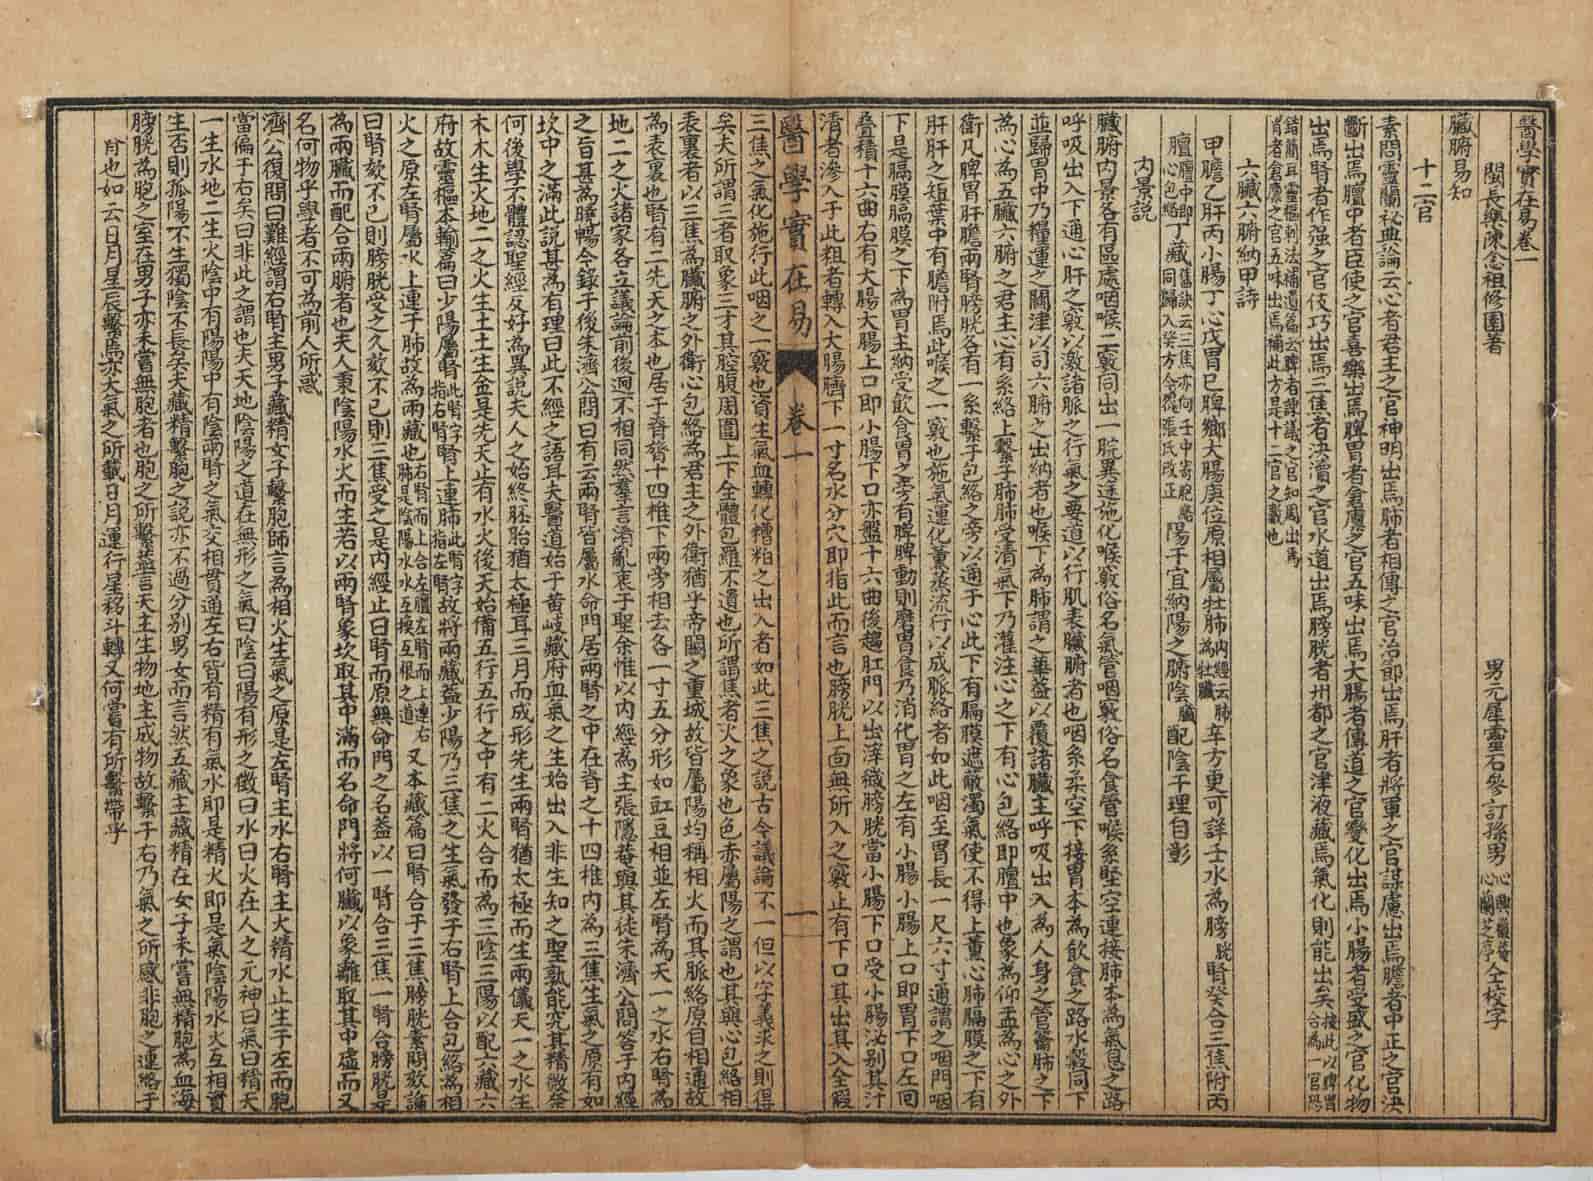 醫學實在易卷一
閩長樂陳念祖修園著　男元犀靈石參訂孫男心典徽菴心蘭芝亭仝校字
臟腑易知
十二官
素問靈蘭祕典論云心者君主之官神明出焉肺者相傅之官治節出焉肝者將軍之官謀慮出焉膽者中正之官決
斷出焉膻中者臣使之官喜樂出焉脾胃者倉廩之官五味出焉大腸者傳道之官變化出焉小腸者受盛之官化物
出焉腎者作强之官伎巧出焉三焦者決瀆之官水道出焉膀胱者州都之官津液藏焉氣化則能出矣按此以脾胃合為一官恐
錯簡耳靈樞刺法補遺篇云脾者諫議之官知周出焉胃者倉廩之官五味出焉補此方是十二官之義也
六臟六腑納甲詩
甲膽乙肝丙小腸丁心戊胃己脾鄉大腸庚位原相屬牡肺內經云肺為牡臟辛方更可詳壬水為膀胱腎癸合三焦附丙
膻膻中即心包絡丁藏舊訣云三焦亦向壬中寄胞絡同歸入癸方今從張氏改正陽干宜納陽之腑陰臟配陰干理自彰
內景說
臟腑內景各有區處咽喉二竅同出一脘異途施化喉竅俗名氣管咽竅俗名食管喉系堅空連接肺本為氣息之路
呼吸出入下通心肝之竅以激諸脈之行氣之要道以行肌表臟腑者也咽系柔空下接胃本為飲食之路水穀同下
並歸胃中乃糧運之關津以司六腑之出納者也喉下為肺謂之華蓋以覆諸臟主呼吸出入為人身之管籥肺之下
為心為五臟六腑之君主心有系絡上繫于肺肺受清氣下乃灌注心之下有心包絡即膻中也象為仰盂為心之外
衛凡脾胃肝膽兩腎膀胱各有一系繫于包絡之旁以通于心此下有膈膜遮蔽濁氣使不得上薰心肺膈膜之下有
肝肝之短葉中有膽附焉此喉之一竅也施氣運化薰蒸流行以成脈絡者如此咽至胃長一尺六寸通謂之咽門咽
下是膈膜膈膜之下為胃主納受飲食胃之旁有脾脾動則磨胃食乃消化胃之左有小腸小腸上口即胃下口左回
疊積十六曲右有大腸大腸上口即小腸下口亦盤十六曲後趨肛門以出滓穢膀胱當小腸下口受小腸泌別其汁
清者滲入于此粗者轉入大腸臍下一寸名水分穴即指此而言也膀胱上面無所入之竅止有下口其出其入全假
醫學實在易　卷一　一
三焦之氣化施行此咽之一竅也資生氣血轉化糟粕之出入者如此三焦之說古今議論不一但以字義求之則得
矣夫所謂三者取象三才其腔腹周圍上下全體包羅不遺也所謂焦者火之象也色赤屬陽之謂也其與心包絡相
表裏者以三焦為臟腑之外衛心包絡為君主之外衛猶乎帝闕之重城故皆屬陽均稱相火而其脈絡原自相通故
為表裏也腎有二先天之本也居于脊膂十四椎下兩旁相去各一寸五分形如豇豆相並左腎為天一之水右腎為
地二之火諸家各立議論前後迥不相同然羣言淆亂衷于聖余惟以內經為主張隱菴與其徒朱濟公問答于內經
之旨甚為曉暢今錄于後朱濟公問曰有云兩腎皆屬水命門居兩腎之中在脊之十四椎內為三焦生氣之原有如
坎中之滿此說甚為有理曰此不經之語耳夫醫道始于黃岐藏府血氣之生始出入非生知之聖孰能究其精微奈
何後學不體認聖經反好為異說夫人之始終胚胎猶太極耳三月而成形先生兩腎猶太極而生兩儀天一之水生
木木生火地二之火生土土生金是先天止有水火後天始備五行五行之中有二火合而為三陰三陽以配六藏六
府故靈樞本輸篇曰少陽屬腎此腎字指右腎腎上連肺此腎字指左腎故將兩藏蓋少陽乃三焦之生氣發于右腎上合包絡為相
火之原左腎屬水上連于肺故為兩藏也右腎而上合左膻左腎而上連右肺是陰陽水火互換互根之道又本藏篇曰腎合于三焦膀胱素問欬論
曰腎欬不已則膀胱受之久欬不已則三焦受之是內經止曰腎而原無命門之名蓋以一腎合三焦一腎合膀胱是
為兩臟而配合兩腑者也夫人秉陰陽水火而生若以兩腎象坎取其中滿而名命門將何臟以象離取其中虛而又
名何物乎學者不可為前人所惑
濟公復問曰難經謂右腎主男子藏精女子繫胞師言為相火生氣之原是左腎主水右腎主火精水止生于左而胞
當偏于右矣曰非此之謂也夫天地陰陽之道在無形之氣曰陰曰陽有形之徵曰水曰火在人之元神曰氣曰精天
一生水地二生火陰中有陽陽中有陰兩腎之氣交相貫通左右皆有精有氣水即是精火即是氣陰陽水火互相資
生否則孤陽不生獨陰不長矣夫藏精繫胞之說亦不過分別男女而言然五藏主藏精在女子未嘗無精胞為血海
膀胱為胞之室在男子亦未嘗無胞者也胞之所繫蓋言天主生物地主成物故繫于右乃氣之所感非胞之連絡于
腎也如云日月星辰繫焉亦大氣之所載日月運行星移斗轉又何嘗有所繫帶乎